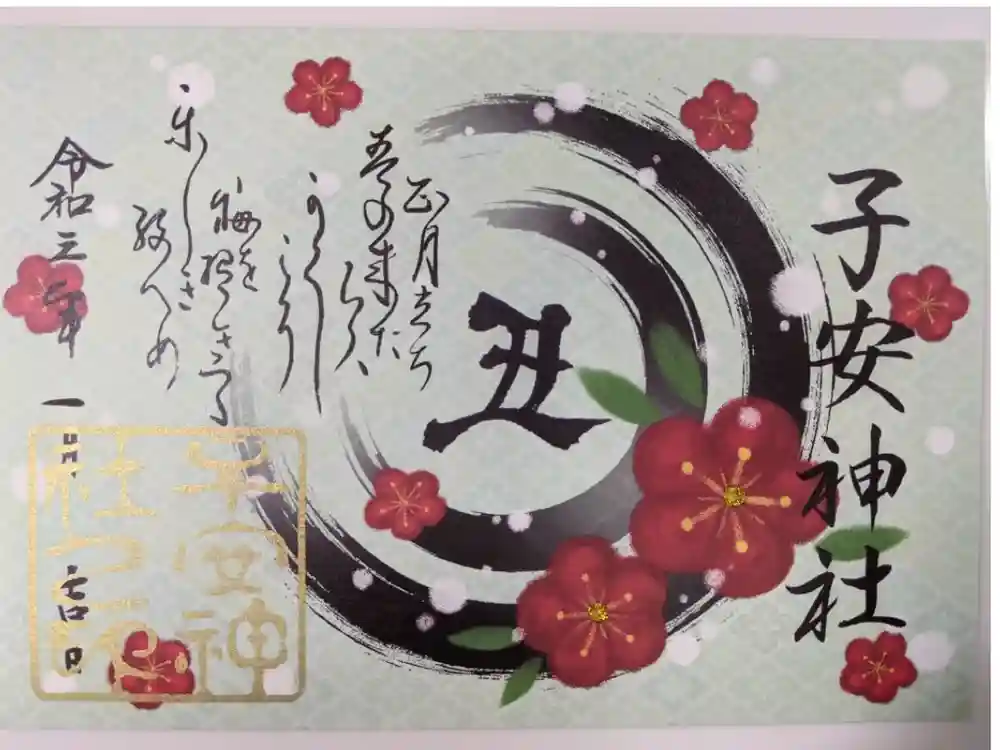 子安神社
丑
正月立ち
春の来たらば
かくしこそ
梅を招きつつ
楽しき
終へめ
令和三年一月吉日
子安神
社